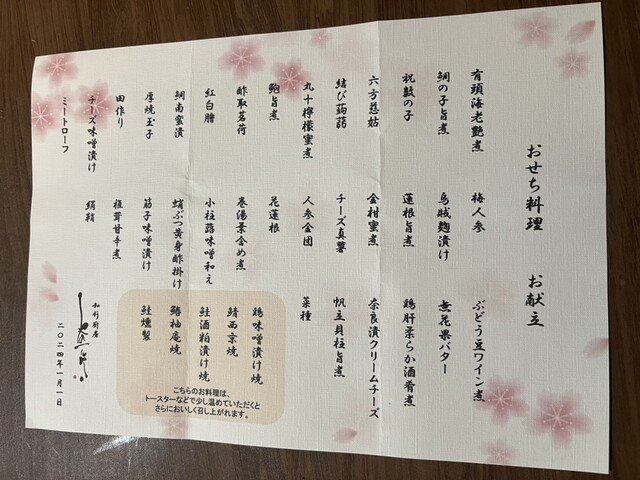 おせち料理　お献立
有頭海老艶煮
梅人参
ぶどう豆ワイン煮
鯛の子旨煮
烏賊麹漬け
無花果バター
祝数の子
蓮根旨煮
鶏肝柔らか酒肴煮
六方慈姑
金柑蜜煮
奈良漬クリームチーズ
結び蒟蒻
チーズ真薯
帆立貝柱旨煮
丸十檸檬蜜煮
人参金団
菜種
鮑旨煮
花蓮根
酢取茗荷
巻湯葉含め煮
紅白膾
小柱蕗味噌和え
鯛南蛮漬
蛸ぶつ黄身酢掛け
厚焼玉子
筋子味噌漬け
田作り
椎茸甘辛煮
チーズ味噌漬け
絹鞘
ミートローフ
鶏味噌漬け焼
鯖西京焼
鮭酒粕漬け焼
鰆柚庵焼
鮭燻製
こちらのお料理は、
トースターなどで少し温めていただくと
さらにおいしく召し上がれます。
和彩厨房
二〇二四年一月一日